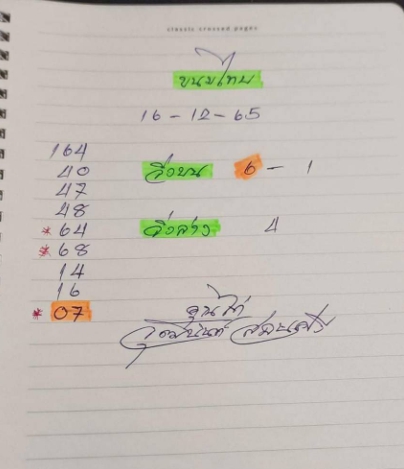 classic crossed pages
ขนมไทย
16 - 12 - 65
164
40 วิ่งบน 6 - 1
47
48
* 64 วิ่งล่าง 4
* 68
14
16
* 07